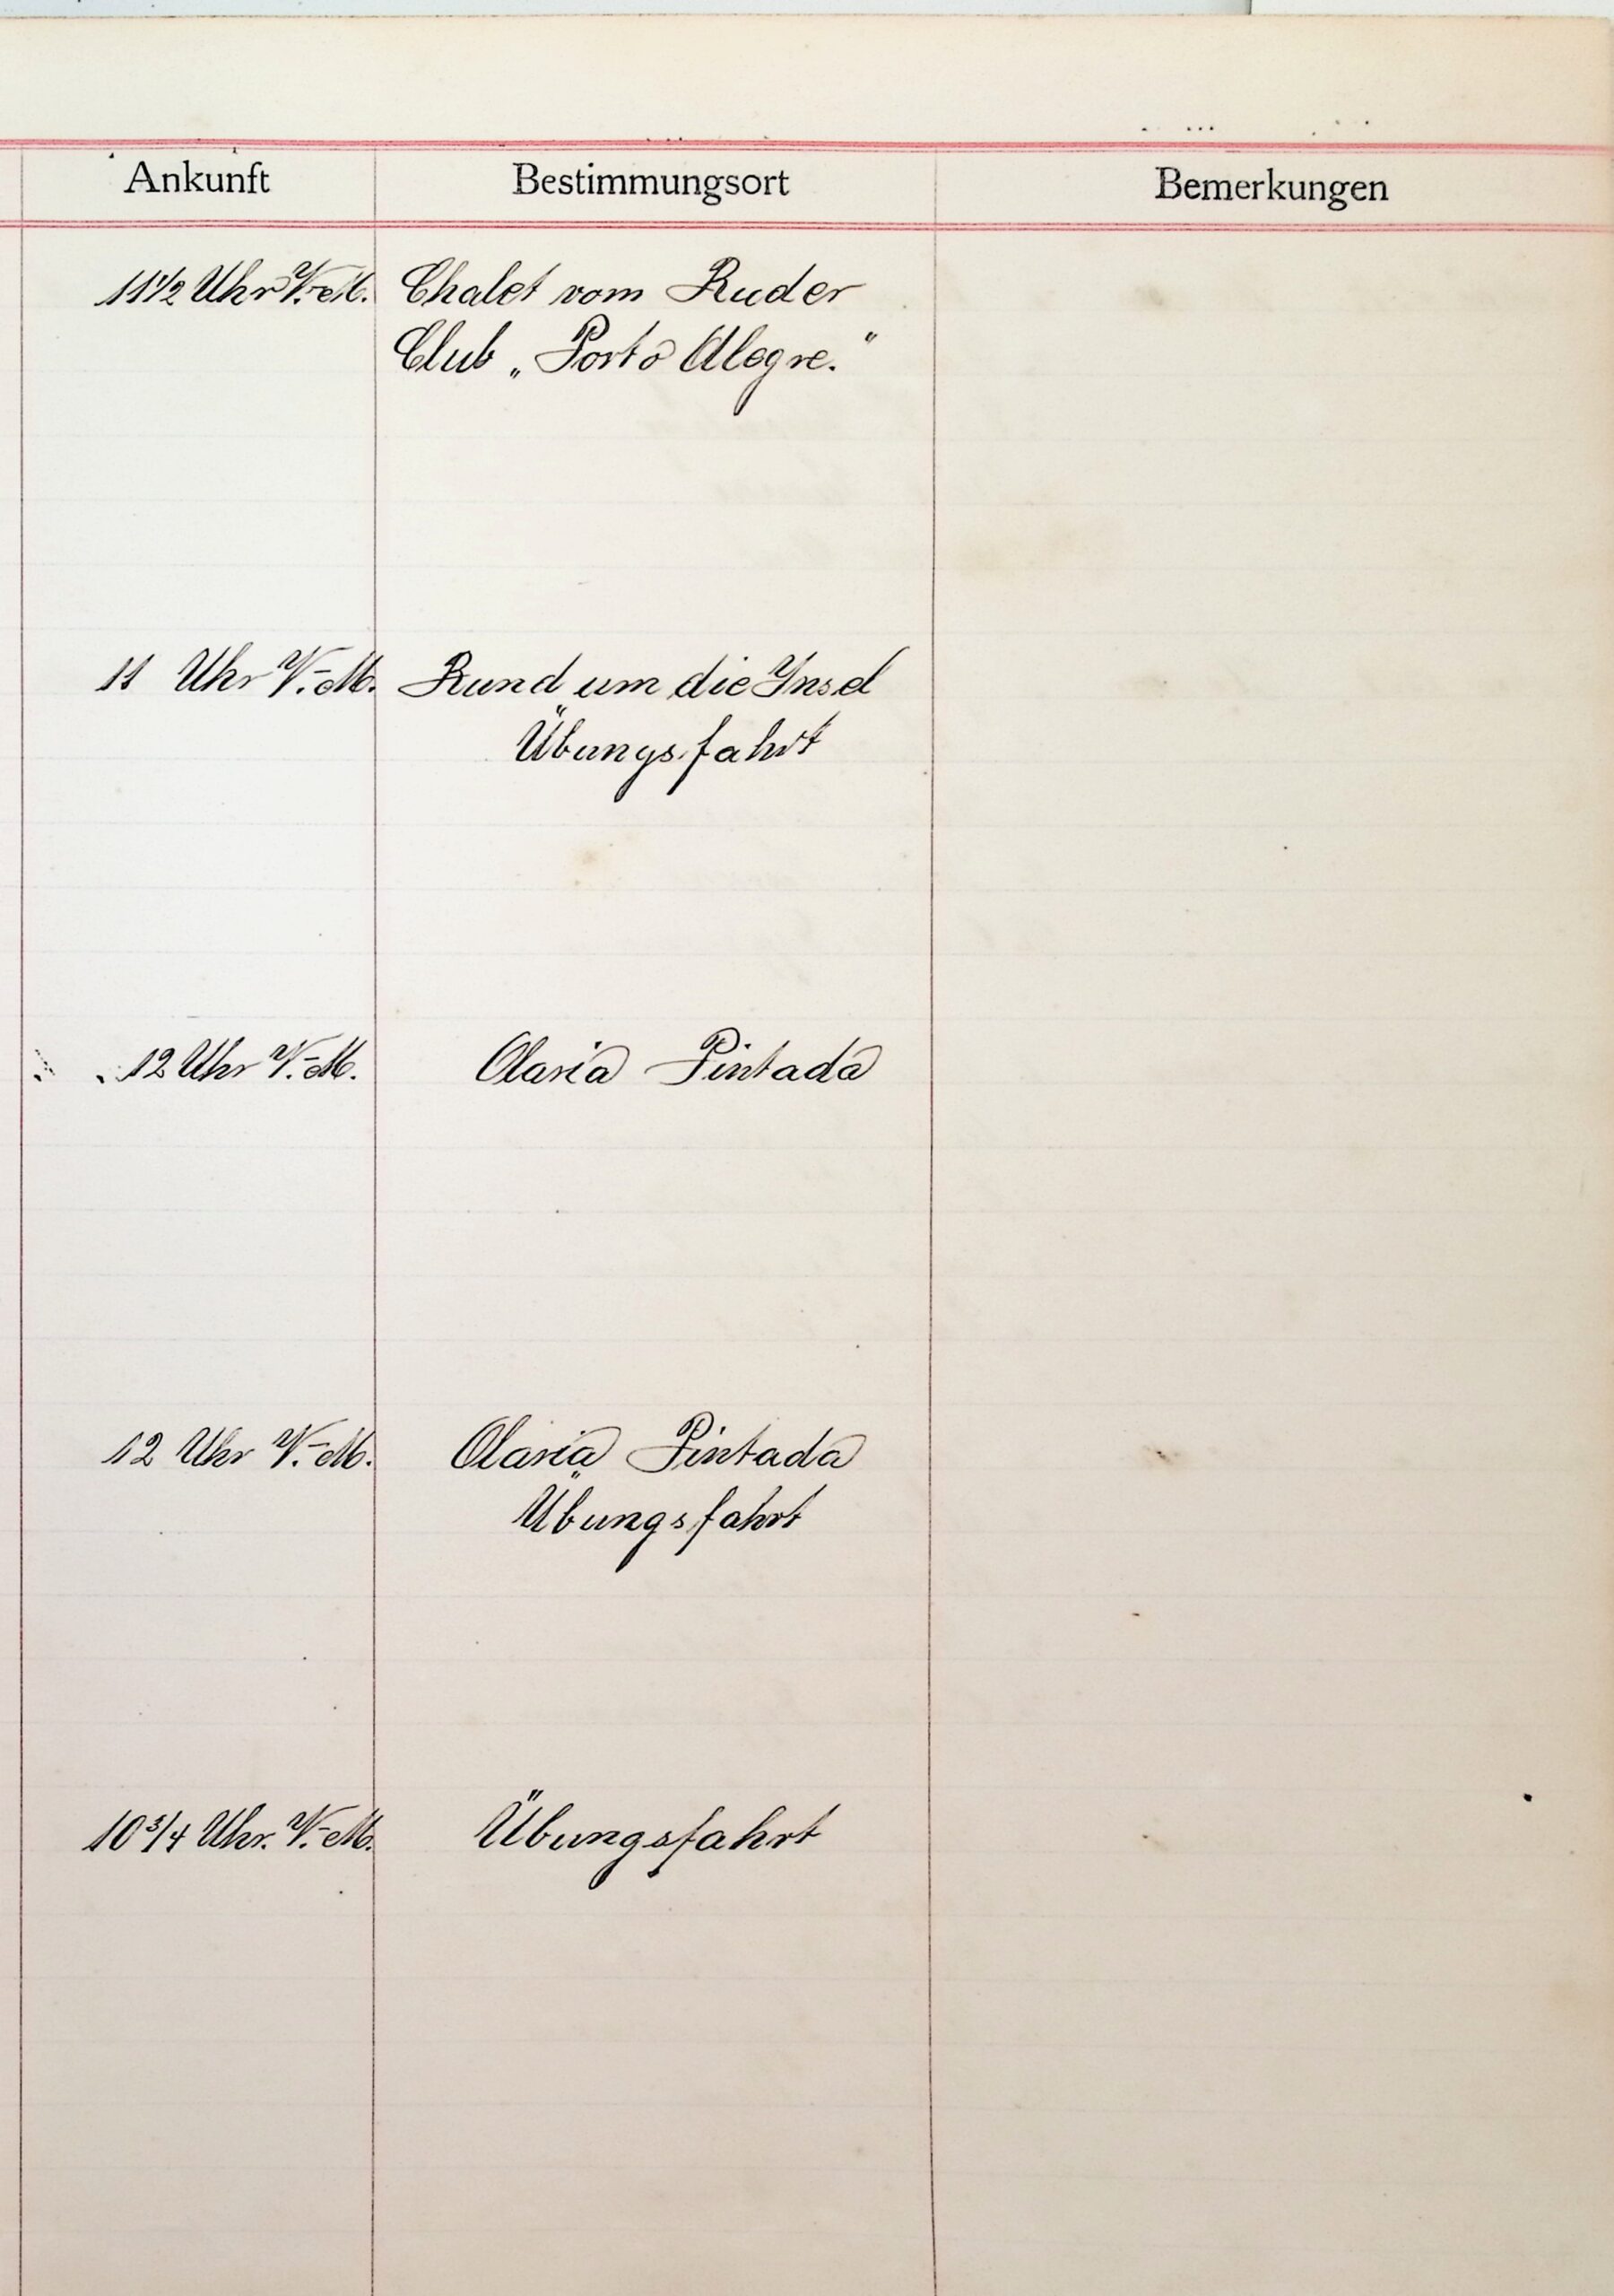 Ankunft Bestimmungsort Bemerkungen
11½ Uhr V.-M. Chalet vom Ruder
Club „Porto Alegre.“
11 Uhr V.-M. Rund um die Insel
Übungsfahrt
12 Uhr V.-M. Olaria Pintada
12 Uhr V.-M. Olaria Pintada
Übungsfahrt
10 3/4 Uhr. V.-M. Übungsfahrt